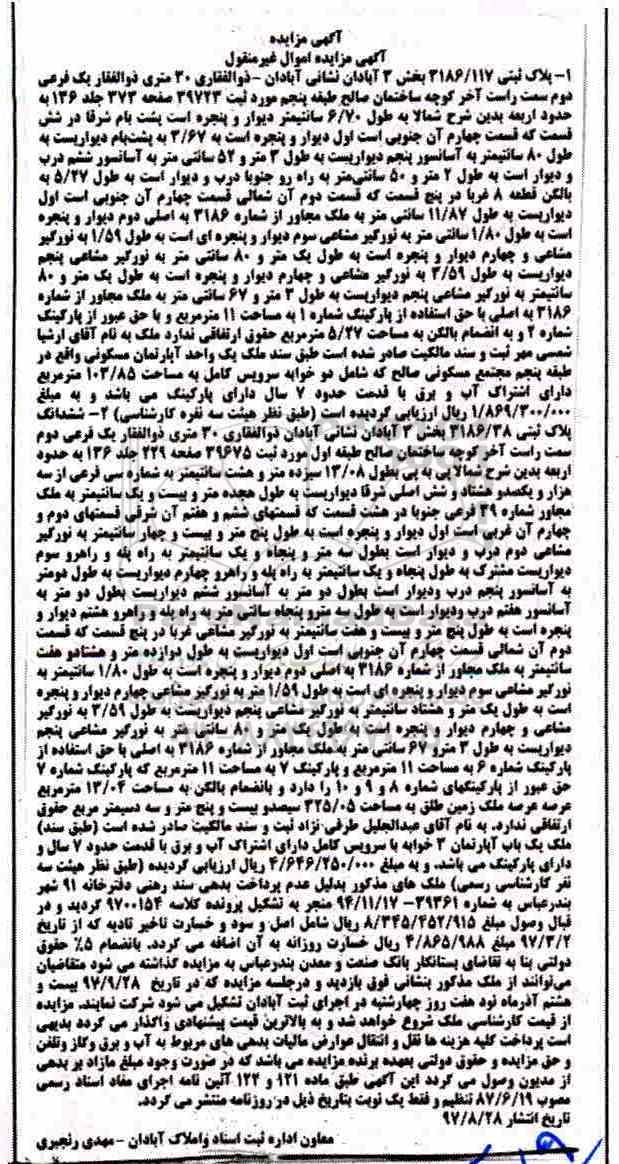 آگهی مزایده
آگهی مزایده اموال غیرمنقول
۱- پلاک ثبتی ۳۱۸۶/۱۱۷ بخش ۳ آبادان نشانی آبادان -ذوالفقاری ۳۰ متری ذوالفقار یک فرعی
دوم سمت راست آخر کوچه ساختمان صالح طبقه پنجم مورد ثبت ۳۹۷۲۳ صفحه ۳۷۳ جلد ۱۳۶ به
حدود اربعه بدین شرح شمالا به طول ۶/۷۰ سانتیمتر دیوار و پنجره است پشت بام شرقا در شش
قسمت که قسمت چهارم آن جنوبی است اول دیوار و پنجره است به ۳/۶۷ به پشت‌بام دیواریست به
طول ۸۰ سانتیمتر به آسانسور پنجم دیواریست به طول ۳ متر و ۵۲ سانتی متر به آسانسور ششم درب
و دیوار است به طول ۲ متر و ۵۰ سانتی‌متر به راه رو جنوبا درب و دیوار است به طول ۵/۲۷ به
بالکن قطعه ۸ غربا در پنج قسمت که قسمت دوم آن شمالی قسمت چهارم آن جنوبی است اول
دیواریست به طول ۱۱/۸۷ سانتی متر به ملک مجاور از شماره ۳۱۸۶ به اصلی دوم دیوار و پنجره
است به طول ۱/۸۰ سانتی متر به نورگیر مشاعی سوم دیوار و پنجره ای است به طول ۱/۵۹ به نورگیر
مشاعی و چهارم دیوار و پنجره است به طول یک متر و ۸۰ سانتی متر به نورگیر مشاعی پنجم
دیواریست به طول ۳/۵۹ به نورگیر مشاعی و چهارم دیوار و پنجره است به طول یک متر و ۸۰
سانتیمتر به نورگیر مشاعی پنجم دیواریست به طول ۳ متر و ۶۷ سانتی متر به ملک مجاور از شماره
۳۱۸۶ به اصلی با حق استفاده از پارکینگ شماره ۱ به مساحت ۱۱ مترمربع و با حق عبور از پارکینگ
شماره ۲ و به انضمام بالکن به مساحت ۵/۲۷ مترمربع حقوق ارتفاقی ندارد ملک به نام آقای ارشیا
شمسی مهر ثبت و سند مالکیت صادر شده است طبق سند ملک یک واحد آپارتمان مسکونی واقع در
طبقه پنجم مجتمع مسکونی صالح که شامل دو خوابه سرویس کامل به مساحت ۱۰۳/۸۵ مترمربع
دارای اشتراک آب و برق با قدمت حدود ۷ سال دارای پارکینگ می باشد و به مبلغ
۱/۸۶۹/۳۰۰/۰۰۰ ریال ارزیابی گردیده است (طبق نظر هیئت سه نفره کارشناسی) ۲- ششدانگ
پلاک ثبتی ۳۱۸۶/۳۸ بخش ۳ آبادان نشانی آبادان ذوالفقاری ۳۰ متری ذوالفقار یک فرعی دوم
سمت راست آخر کوچه ساختمان صالح طبقه اول مورد ثبت ۳۹۶۷۵ صفحه ۲۲۹ جلد ۱۳۶ به حدود
اربعه بدین شرح شمالا پی به پی بطول ۱۳/۰۸ سیزده متر و هشت سانتیمتر به شماره سی فرعی از سه
هزار و یکصدو هشتاد و شش اصلی شرقا دیواریست به طول هجده متر و بیست و یک سانتیمتر به ملک
مجاور شماره ۳۹ فرعی جنوبا در هشت قسمت که قسمتهای ششم و هفتم آن شرقی قسمتهای دوم و
چهارم آن غربی است اول دیوار و پنجره است به طول پنج متر و بیست و چهار سانتیمتر به نورگیر
مشاعی دوم درب و دیوار است بطول سه متر و پنجاه و یک سانتیمتر به راه پله و راهرو سوم
دیواریست مشترک به طول پنجاه و یک سانتیمتر به راه پله و راهرو چهارم دیواریست به طول دومتر
به آسانسور پنجم درب ودیوار است بطول دو متر به آسانسور ششم دیواریست بطول دو متر به
آسانسور هفتم درب ودیوار است به طول سه مترو پنجاه سانتی متر به راه پله و راهرو هشتم دیوار و
پنجره است به طول پنج متر و بیست و هفت سانتیمتر به نورگیر مشاعی غربا در پنج قسمت که قسمت
دوم آن شمالی قسمت چهارم آن جنوبی است اول دیواریست به طول دوازده متر و هشتادو هفت
سانتیمتر به ملک مجاور از شماره ۳۱۸۶ به اصلی دوم دیوار و پنجره است به طول ۱/۸۰ سانتیمتر به
نورگیر مشاعی سوم دیوار و پنجره ای است به طول ۱/۵۹ متر به نورگیر مشاعی چهارم دیوار و پنجره
است به طول یک متر و هشتاد سانتیمتر به نورگیر مشاعی پنجم دیواریست به طول ۳/۵۹ به نورگیر
مشاعی و چهارم دیوار و پنجره است به طول یک متر و ۸۰ سانتی متر به نورگیر مشاعی پنجم
دیواریست به طول ۳ مترو ۶۷ سانتی متر به ملک مجاور از شماره ۳۱۸۶ به اصلی با حق استفاده از
پارکینگ شماره ۶ به مساحت ۱۱ مترمربع و پارکینگ ۷ به مساحت ۱۱ مترمربع که پارکینگ شماره ۷
حق عبور از پارکینگهای شماره ۸ و ۹ و ۱۰ را دارد و بانضمام بالکن به مساحت ۱۳/۰۴ مترمربع
عرصه عرصه ملک زمین طلق به مساحت ۳۲۵/۰۵ سیصدو بیست و پنج متر و سه دسیمتر مربع حقوق
ارتفاقی ندارد. به نام آقای عبدالجلیل طرفی نژاد ثبت و سند مالکیت صادر شده است (طبق سند)
ملک یک باب آپارتمان ۳ خوابه با سرویس کامل دارای اشتراک آب و برق با قدمت حدود ۷ سال و
دارای پارکینگ می باشد. و به مبلغ ۴/۶۴۶/۲۵۰/۰۰۰ ریال ارزیابی گردیده (طبق نظر هیئت سه
نفر کارشناسی رسمی) ملک های مذکور بدلیل عدم پرداخت بدهی سند رهنی دفترخانه ۹۱ شهر
بندرعباس به شماره ۳۹۳۶۱- ۹۴/۱۱/۱۷ منجر به تشکیل پرونده کلاسه ۹۷۰۰۱۵۴ گردید و در
قبال وصول مبلغ ۸/۳۴۵/۴۵۲/۹۱۵ ریال شامل اصل و سود و خسارت تاخیر تادیه که از تاریخ
۹۷/۳/۲ مبلغ ۴/۸۶۵/۹۸۸ ریال خسارت روزانه به آن اضافه می گردد. بانضمام ۵٪ حقوق
دولتی بنا به تقاضای بستانکار بانک صنعت و معدن بندرعباس به مزایده گذاشته می شود متقاضیان
می‌توانند از ملک مذکور بنشانی فوق بازدید و درجلسه مزایده که در تاریخ ۹۷/۹/۲۸ بیست و
هشتم آذرماه نود هفت روز چهارشنبه در اجرای ثبت آبادان تشکیل می شود شرکت نمایند. مزایده
از قیمت کارشناسی ملک شروع خواهد شد و به بالاترین قیمت پیشنهادی واگذار می گردد بدیهی
است پرداخت کلیه هزینه ها نقل و انتقال عوارض مالیات بدهی های مربوط به آب و برق وگاز وتلفن
و حق مزایده و حقوق دولتی بعهده برنده مزایده می باشد که در صورت وجود مبلغ مازاد بر بدهی
از مدیون وصول می گردد این آگهی طبق ماده ۱۲۱ و ۱۲۲ آئین نامه اجرای مفاد اسناد رسمی
مصوب ۸۷/۶/۱۹ تنظیم و فقط یک نوبت بتاریخ ذیل در روزنامه منتشر می گردد.
تاریخ انتشار ۹۷/۸/۲۸
معاون اداره ثبت اسناد واملاک آبادان -مهدی رنجبری